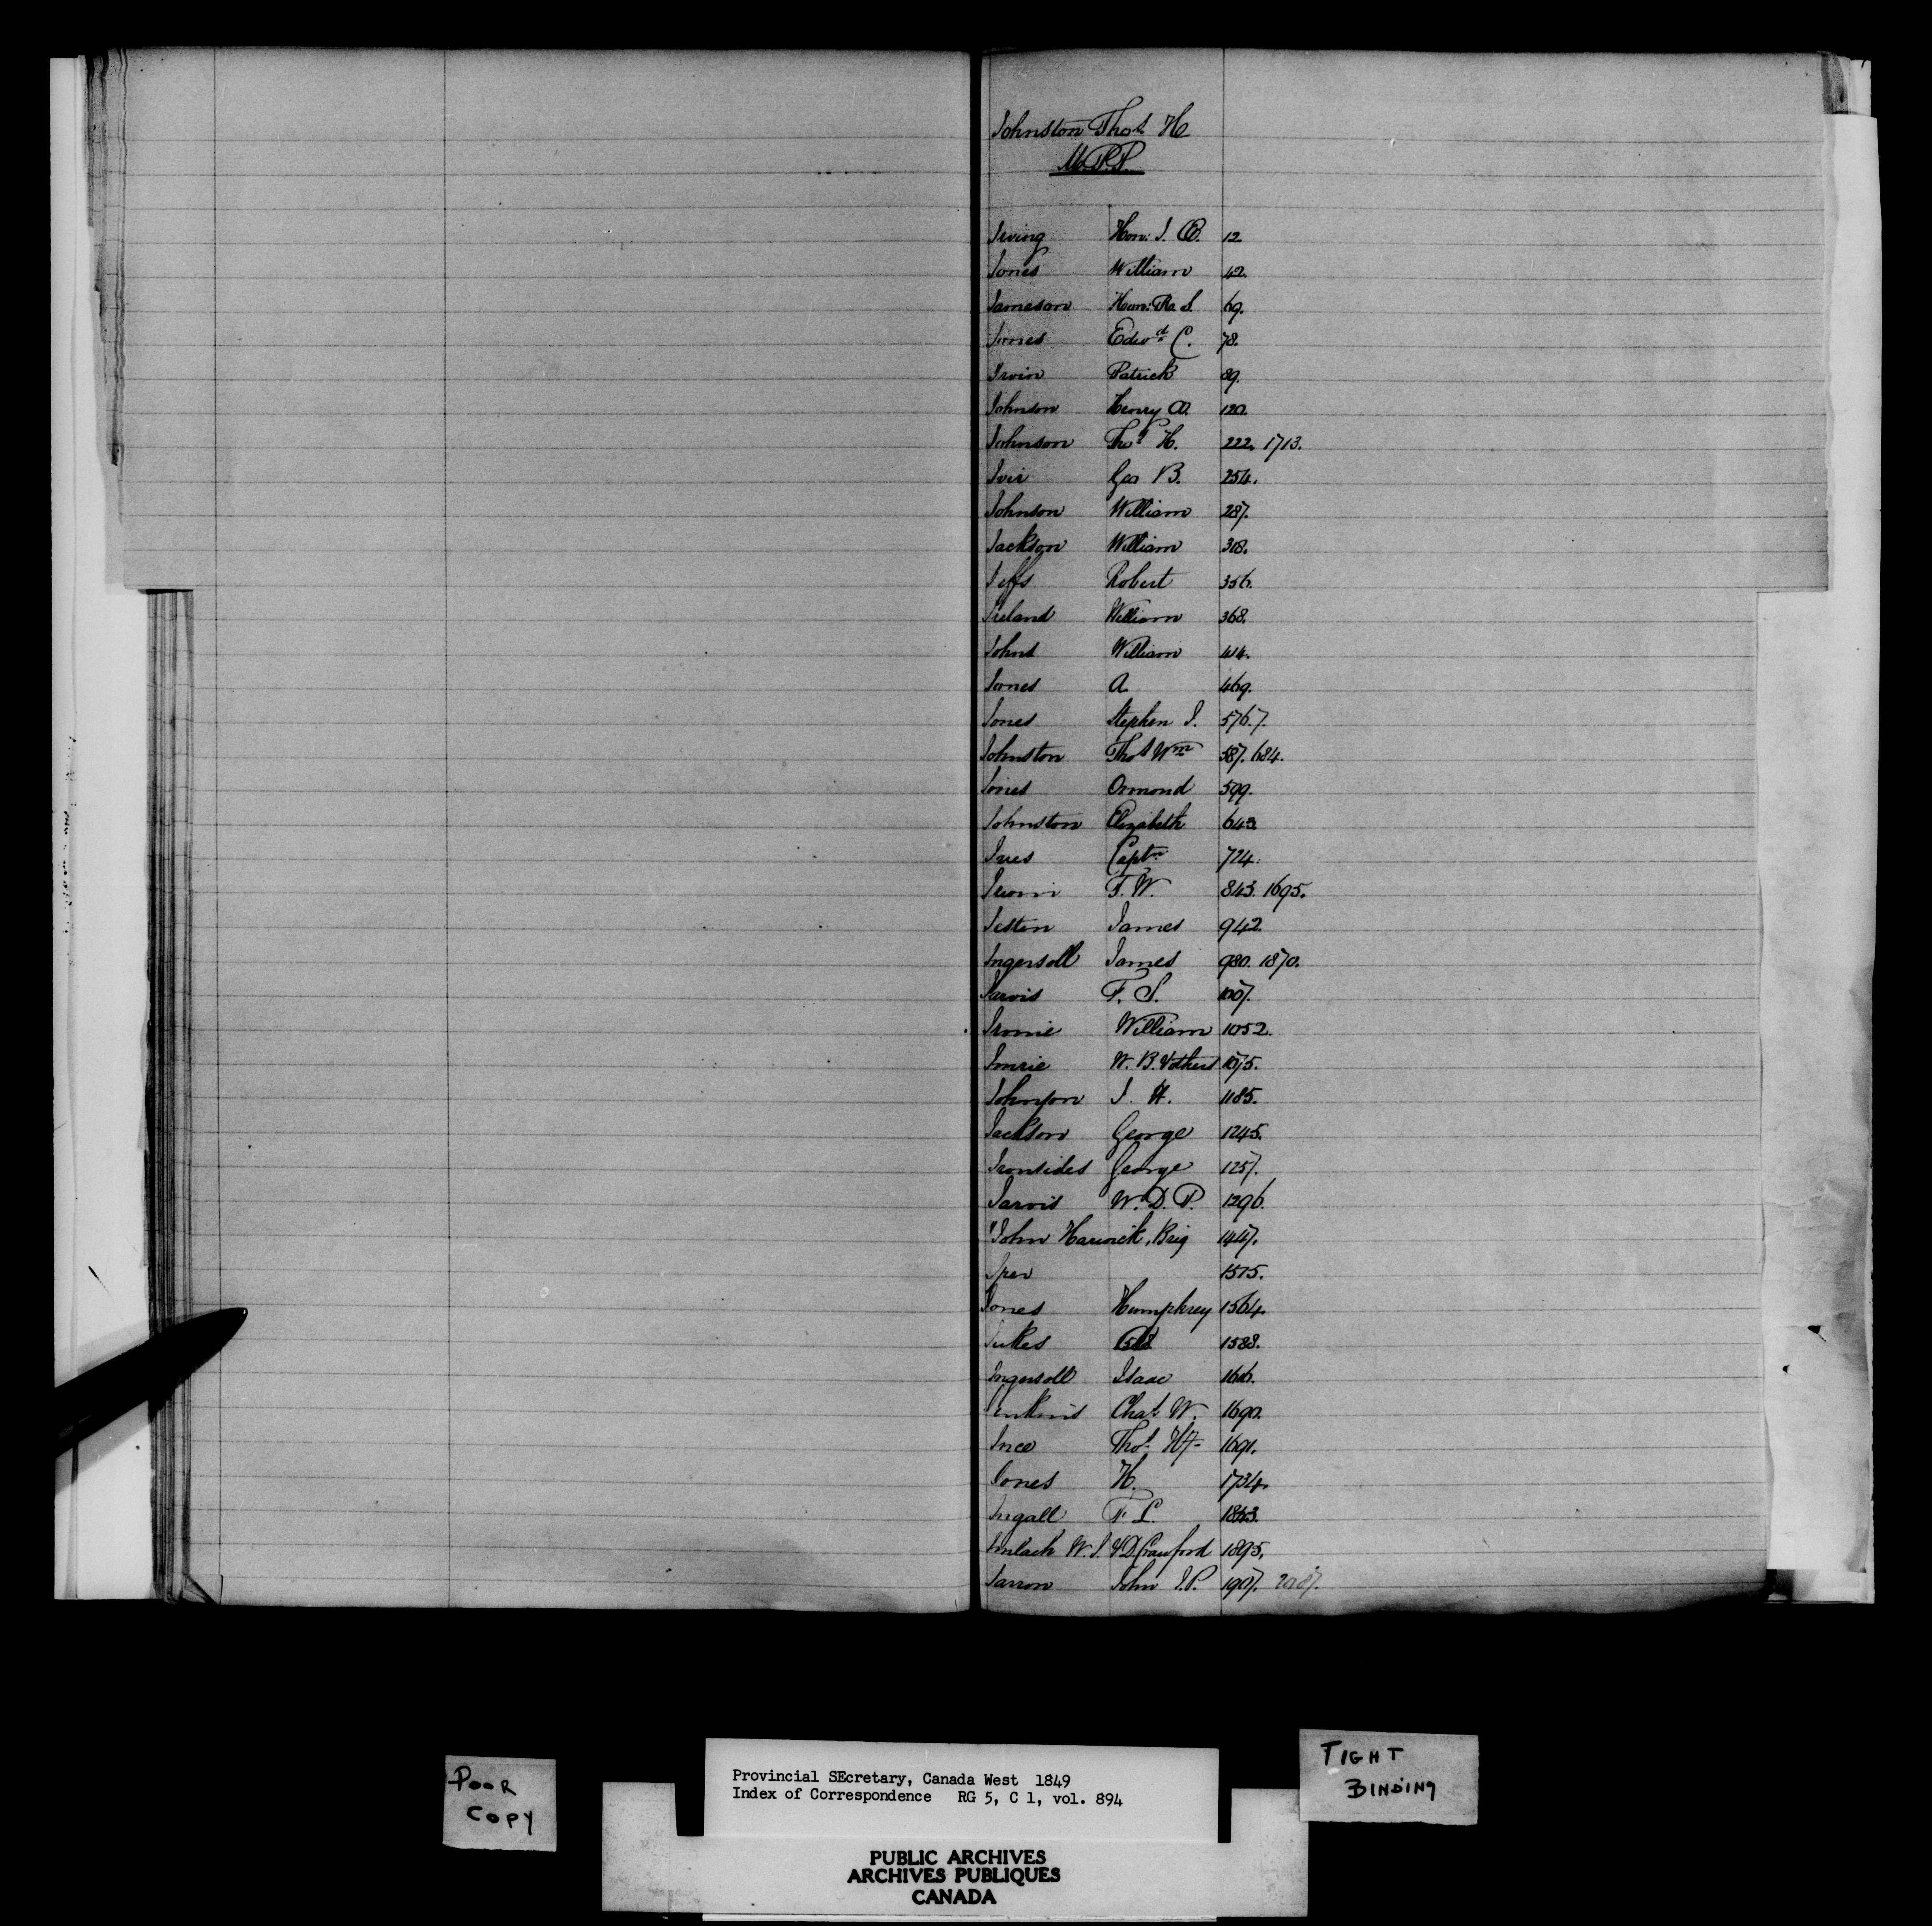 Johnston Thos. H
M.P.P.
Irving Hon: J. Æ. 12
Jones William 42.
Jameson Hon: R. S. 69.
Jones Edwd. C. 78.
Irvin Patrick 89.
Johnson Henry O. 120.
Johnson Thos. H. 222. 1713.
Geo B. 254.
Johnson William 287.
Jackson William 318.
Jeffs Robert 356.
Ireland William 368.
Johns William 414.
Jones A. 469.
Jones Stephen J. 576.7.
Johnston Thos Wm 587. 684.
Jones Ormond 599.
Johnston Elizabeth 643
Ives Captn. 724.
F. W. 843. 1695.
James 942.
Ingersoll James 980. 1870.
Jarvis F. S. 1007.
William 1052.
Imrie W. B. & others 1075.
Johnson J. H. 1185.
Jackson George 1245.
Ironsides George 1257.
Jarvis W. D. P. 1296.
"John Harwick, Brig 1447.
1515.
Jones Humphrey 1564.
Jukes 1588.
Ingersoll Isaac 1616.
Jenkins Chas. W. 1690.
Ince Thos. 1691.
Jones H. 1734.
Ingall F. L.
Imlach W. J. & D. Crauford 1895.
Jarron John J.P. 1907.
POOR
COPY
Provincial SEcretary, Canada West 1849
Index of Correspondence RG 5, C 1, vol. 894
PUBLIC ARCHIVES
ARCHIVES PUBLIQUES
CANADA
TIGHT
BINDING